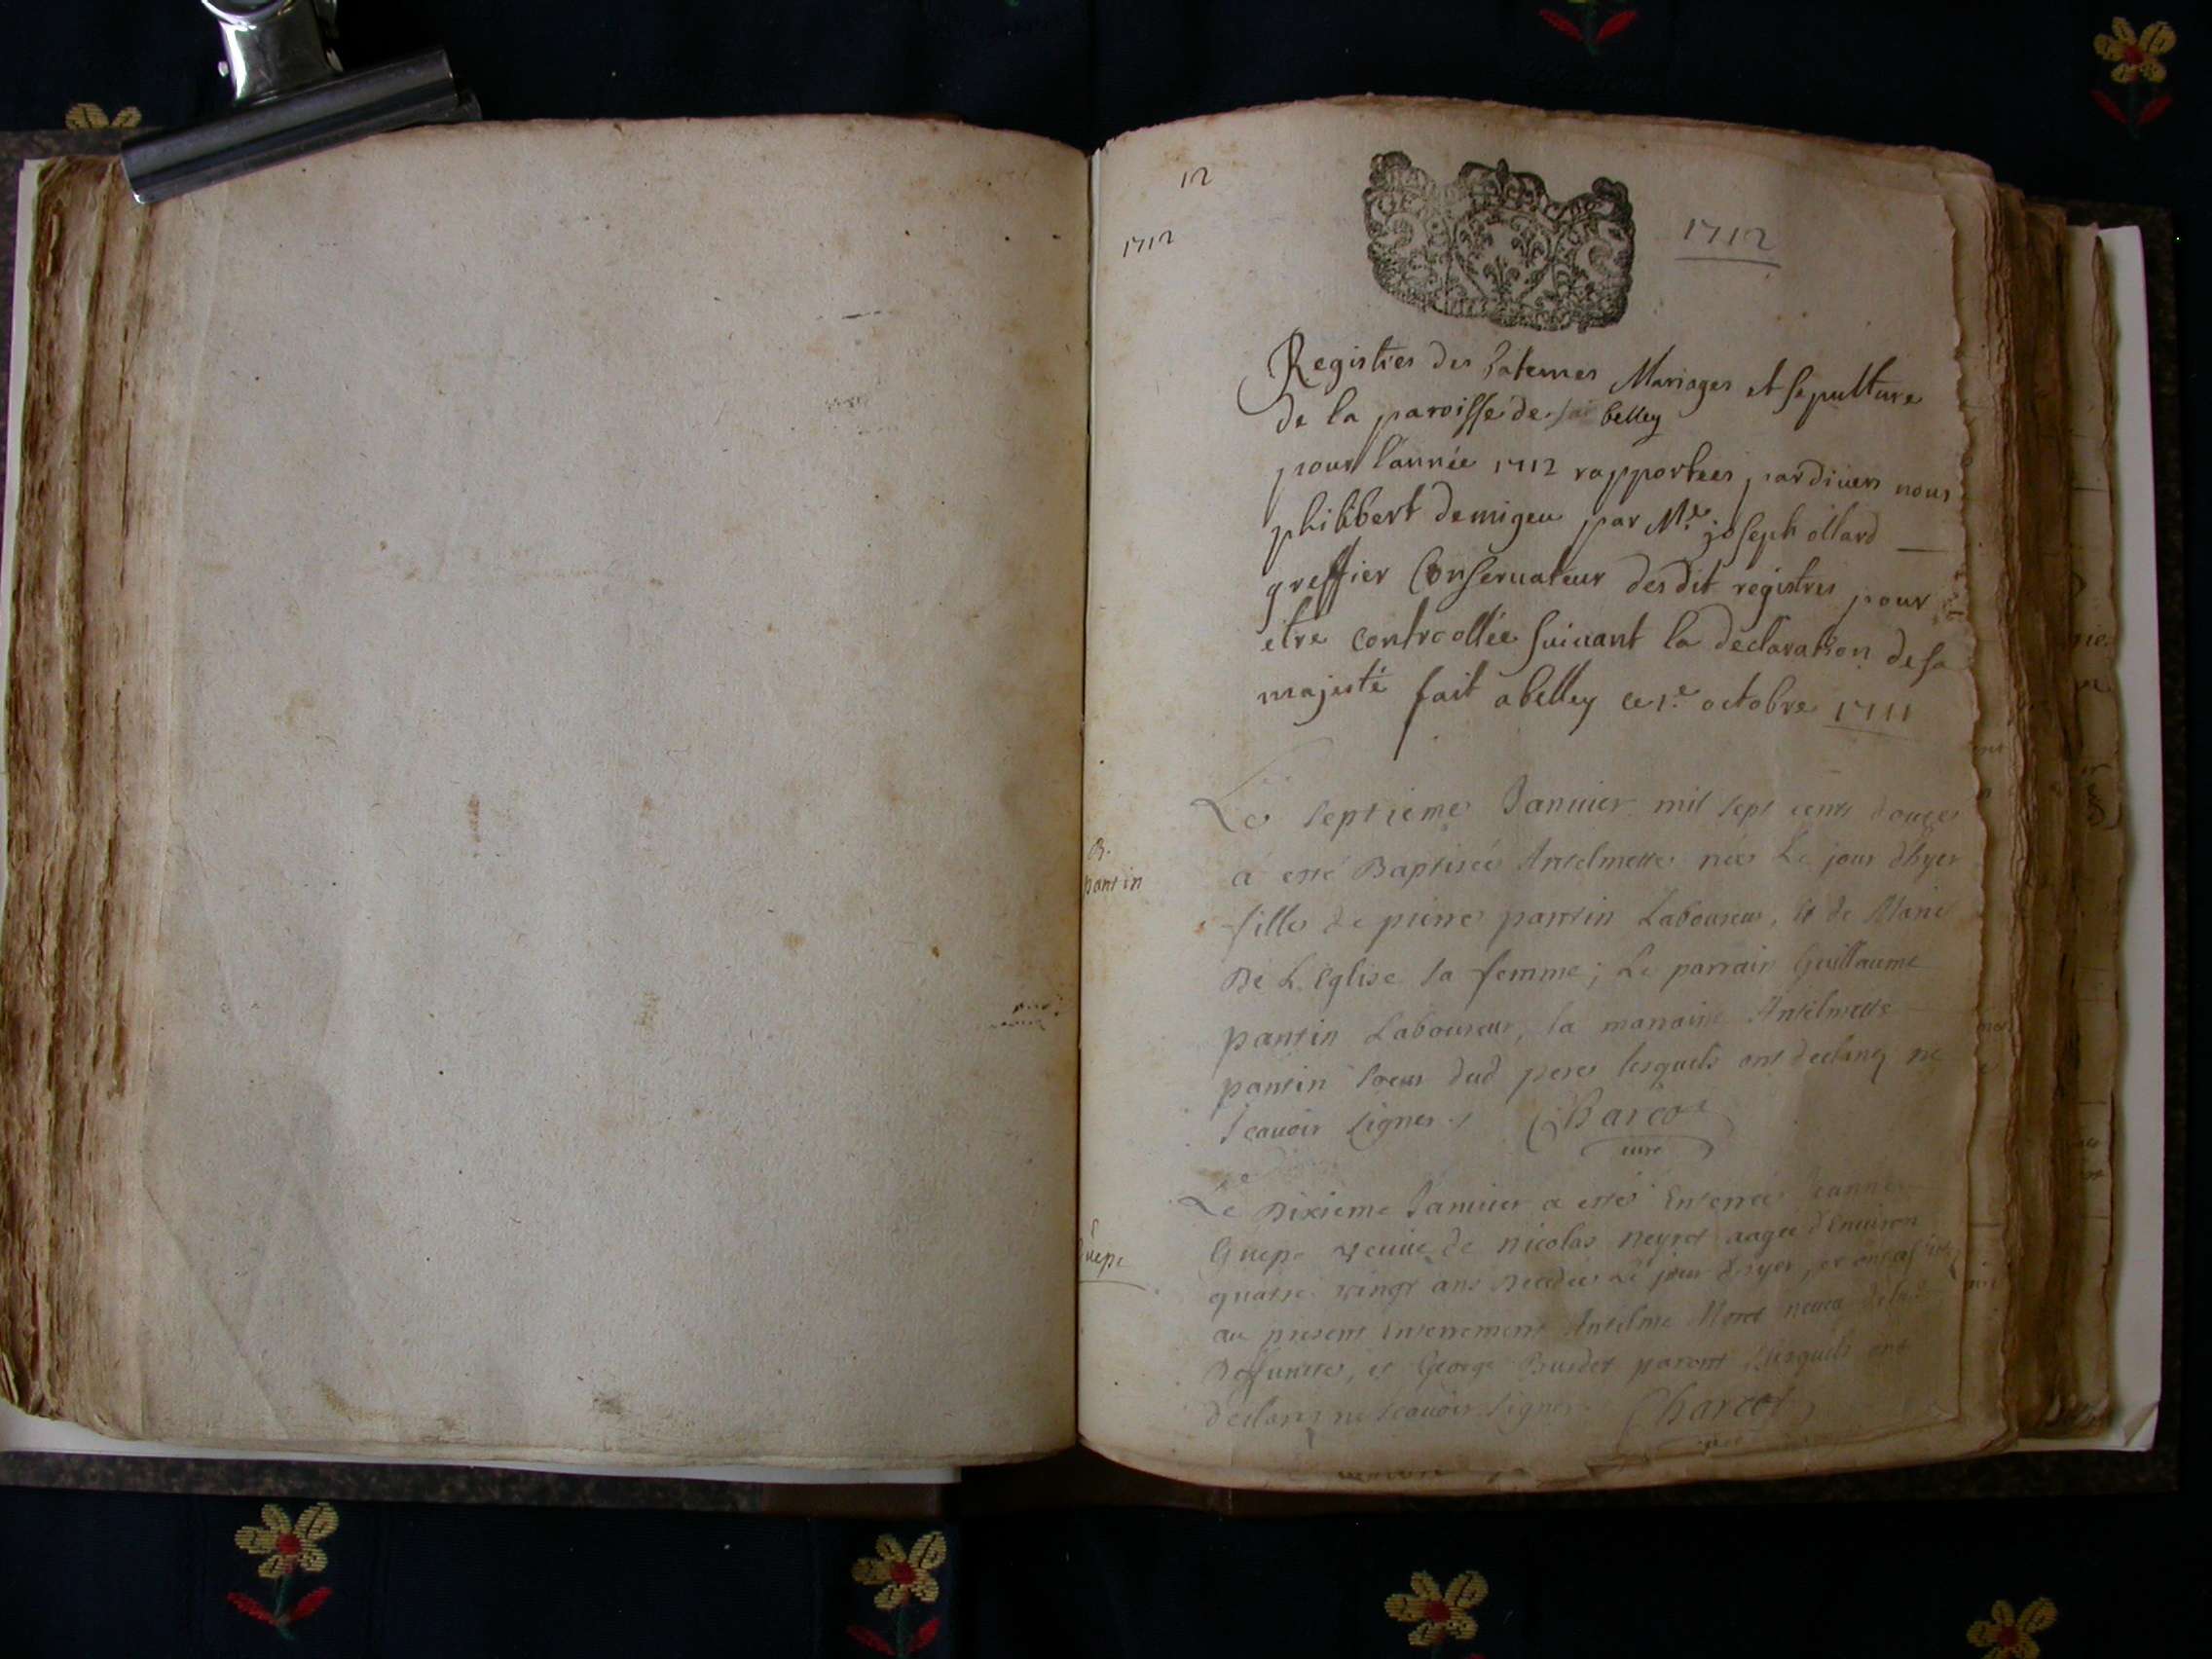 12
1712
1712
Registres des batemes Mariages et sepulture
de la paroisse de belley
pour l'année 1712 rapportees pardiuen nous
philibert demigeu par Me. joseph ollard
greffier Conseruateur desdit registres pour
etre controollée suiuant la declaration de sa
majesté fait a belley ce 1.e octobre 1711
Le septieme Januier mil sept cents douze
B.
pantin
a esté Baptisée Antelmette née Le jour d'hyer
fille de pierre pantin Laboureur, et de Marie
De L'Eglise sa femme; Le parrain Guillaume
pantin Laboureur, la marraine Antelmette
pantin soeur dud pere lesquels ont declaré ne
scauoir signer. Charcot
curé
Le Dixieme Januier a esté Enterrée Jeanne
Guepe
Guepe veuue de nicolas neyret aagée d'Enuiron
quatre vingt ans decedée Le jour d'hyer, et ont assisté
au present enterrement Antelme Moret neueu de lad
Deffuncte, et George Burdet parent lesquels ont
declaré ne scauoir signer Charcot